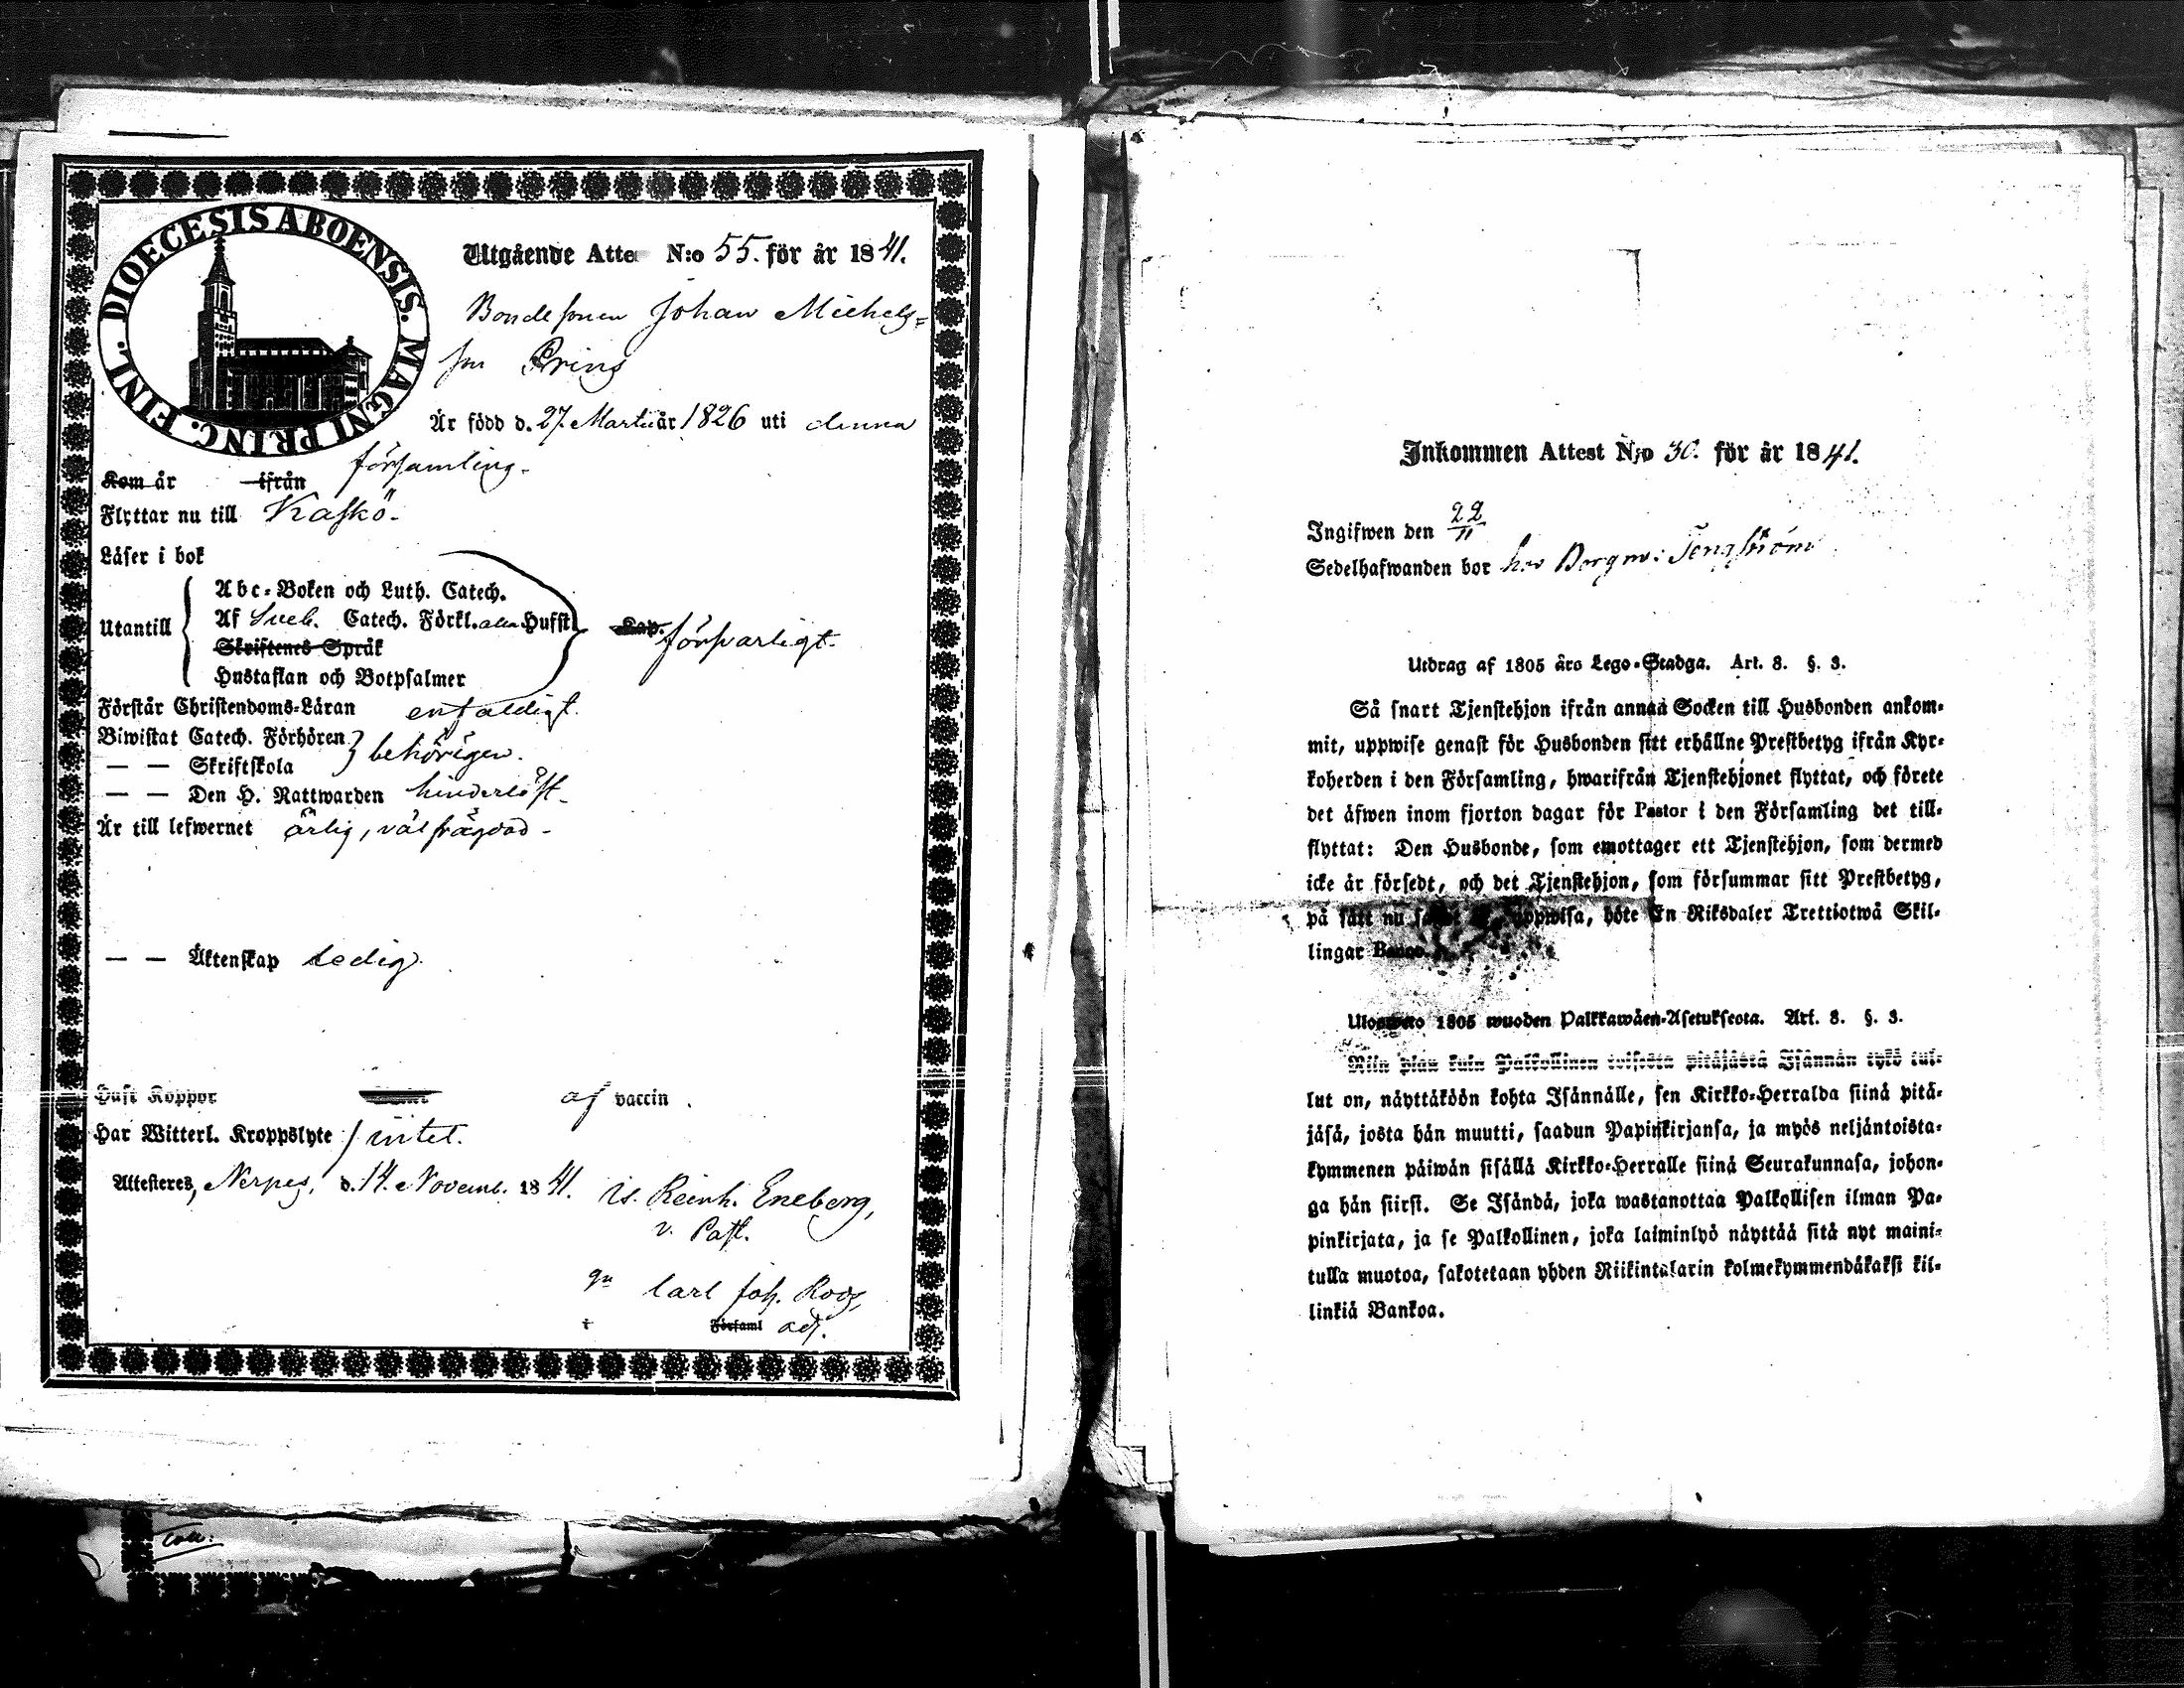 DIOECESIS ABOENSIS. MAGNI PRINC. FINL.
Utgående Atte N:o 55. för år 1841.
Bondesonen Johan Michels=
son Prins
Är född d. 27 Martii år 1826 uti denna
församling.
Kom år ifrån
Flyttar nu till Kaskö.
Läser i bok
Abc-Boken och Luth. Catech.
Utantill Af Sveb. Catech. Förkl. alla Hufst. Cap. försvarligt.
Skriftenes Språk
Hustaflan och Botpsalmer
Förstår Christendoms-Läran enfaldigt.
Biwistat Catech. Förhören
— — Skriftskola behörigen.
— — Den H. Nattwarden hinderlöst.
Är till lefwernet ärlig, väl frägdad.
— — Äktenskap ledig.
Haft Koppor af vaccin.
Har Witterl. Kroppslyte intet.
Attesteres, Nerpes, d. 14. Novemb. 1841. Is. Reinh. Eneberg,
v. Past.
gn Carl Joh. Roos,
i Församl adj.
coll:
Inkommen Attest N:o 30. för år 1841.
Ingifwen den 22/11
Sedelhafwanden bor hos Borgm: Tengström
Utdrag af 1805 års Lego-Stadga. Art. 8. §. 3.
Så snart Tjenstehjon ifrån annan Socken till Husbonden ankom-
mit, uppwise genast för Husbonden sitt erhållne Prestbetyg ifrån Kyr-
koherden i den Församling, hwarifrån Tjenstehjonet flyttat, och förete
det äfwen inom fjorton dagar för Pastor i den Församling det till-
flyttat: Den Husbonde, som emottager ett Tjenstehjon, som dermed
icke är försedt, och det Tjenstehjon, som försummar sitt Prestbetyg,
på sätt nu uppwisa, böte En Riksdaler Trettiotwå Skil-
lingar Banco.
Ulosweto 1805 wuoden Palkkawäen-Asetuksesta. Art. 8. §. 3.
Niin pian kuin Palkollinen toisesta pitäjästä Isännän tykö tul-
lut on, näyttäköön kohta Isännälle, sen Kirkko-Herralda siinä pitä-
jäsä, josta hän muutti, saadun Papinkirjansa, ja myös neljäntoista-
kymmenen päiwän sisällä Kirkko-Herralle siinä Seurakunnasa, johon-
ga hän siirsi. Se Isändä, joka wastanottaa Palkollisen ilman Pa-
pinkirjata, ja se Palkollinen, joka laiminlyö näyttää sitä nyt maini-
tulla muotoa, sakotetaan yhden Riikintalarin kolmekymmendäkaksi kil-
linkiä Bankoa.